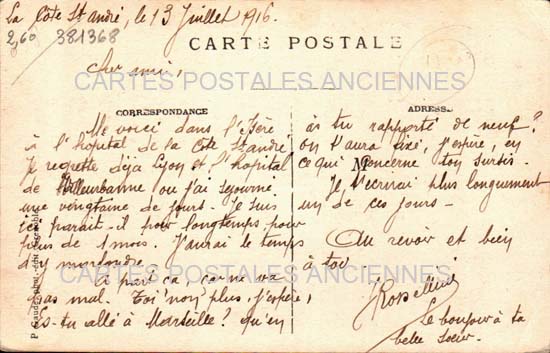 La Côte St André, le 13 Juillet 1916.
2,60 381368
CARTE POSTALE
Cher ami,
CARTES POSTALES ANCIENNES
CORRESPONDANCE
ADRESSE
Me voici dans l'Isère
à l'hopital de la Côte St André
Je regrette déjà Lyon et l'hopital
de Villeurbanne ou j'ai séjourné
une vingtaine de jours. Je suis
ici parait-il pour longtemps pour
plus de 1 mois. J'aurai le temps
d'y
à part ça, ça ne va
pas mal. Toi non plus, j'espère,
Es-tu allé à Marseille? qu'en
as tu rapporté de neuf?
on t'aura fixé, j'espère, en
ce qui concerne ton sursis.
M
Je t'écrirai plus longuement
un de ces jours -
Au revoir et bien
à toi
CARTES POSTALES ANCIENNES
Le bonjour à ta
belle soeur.